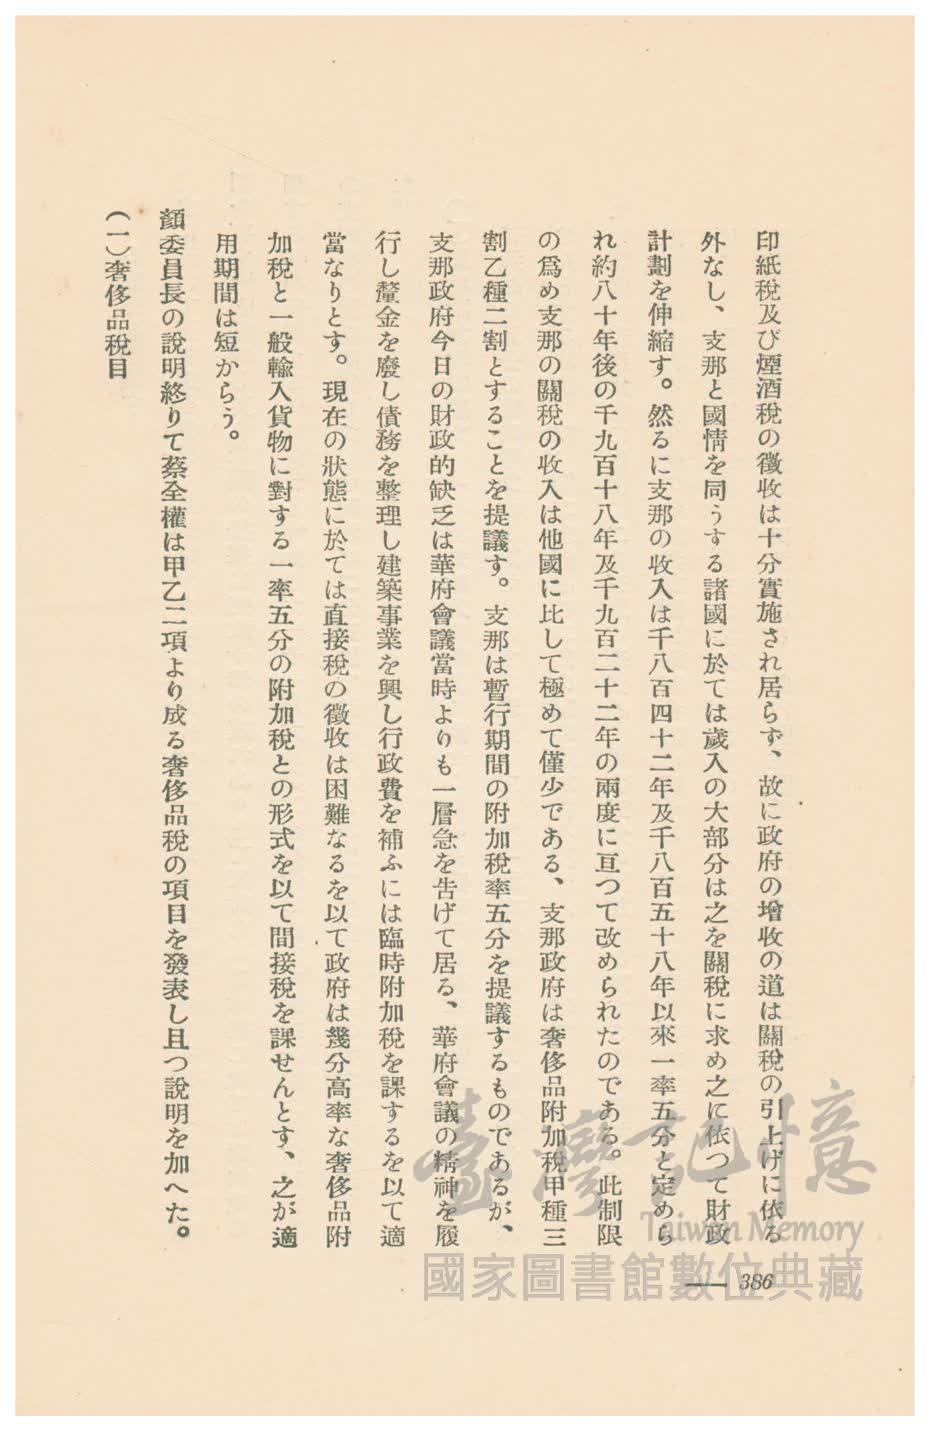 印紙稅及び煙酒稅の徵收は十分實施され居らず、故に政府の增收の道は關稅の引上げに依る
外なし、支那と國情を同うする諸國に於ては歲入の大部分は之を關稅に求め之に依つて財政
計劃を伸縮す。然るに支那の收入は千八百四十二年及千八百五十八年以來一率五分と定めら
れ約八十年後の千九百十八年及千九百二十二年の兩度に亘つて改められたのである。此制限
の爲め支那の關稅の收入は他國に比して極めて僅少である、支那政府は奢侈品附加稅甲種三
割乙種二割とすることを提議す。支那は暫行期間の附加稅率五分を提議するものであるが、
支那政府今日の財政的缺乏は華府會議當時よりも一層急を告げて居る、華府會議の精神を履
行し釐金を廢し債務を整理し建築事業を興し行政費を補ふには臨時附加稅を課するを以て適
當なりとす。現在の狀態に於ては直接稅の徵收は困難なるを以て政府は幾分高率な奢侈品附
加稅と一般輸入貨物に對する一率五分の附加稅との形式を以て間接稅を課せんとす、之が適
用期間は短からう。
顏委員長の說明終りて蔡全權は甲乙二項より成る奢侈品稅の項目を發表し且つ說明を加へた。
(一)奢侈品稅目
386
臺灣記憶
Taiwan Memory
國家圖書館數位典藏